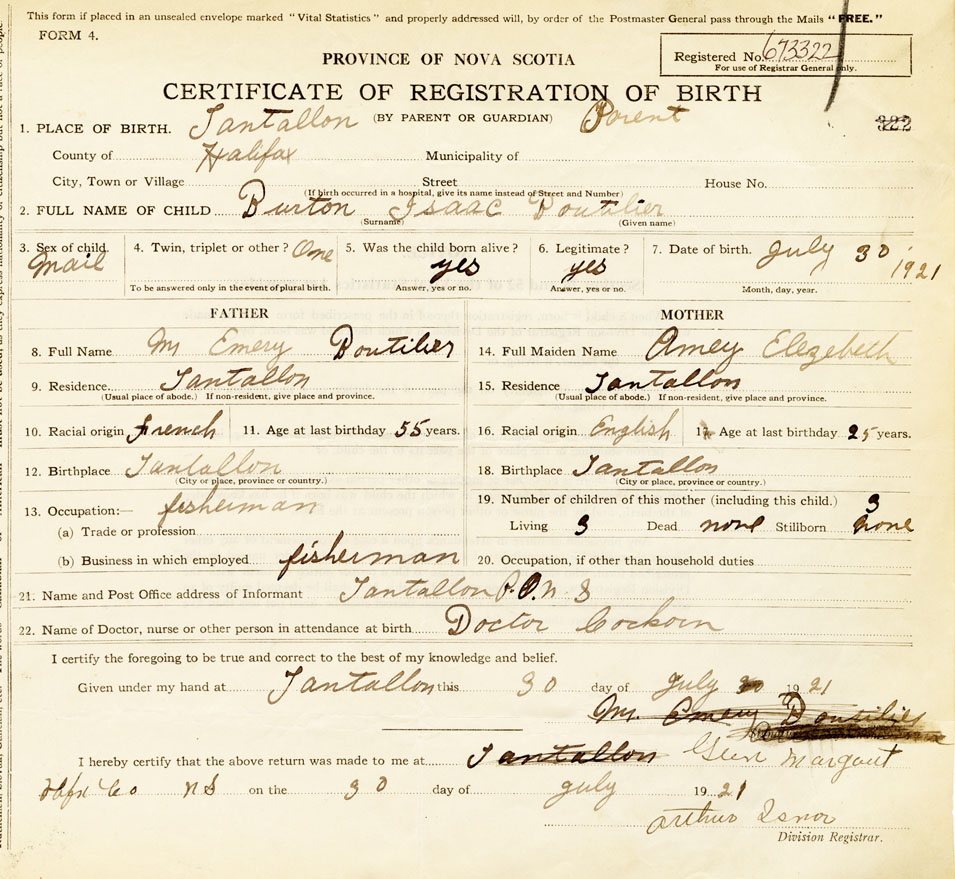 This form if placed in an unsealed envelope marked "Vital Statistics" and properly addressed will, by order of the Postmaster General pass through the Mails "FREE."
FORM 4.
Registered No. 673322
For use of Registrar General only.
PROVINCE OF NOVA SCOTIA
CERTIFICATE OF REGISTRATION OF BIRTH
(BY PARENT OR GUARDIAN) Parent
322
1. PLACE OF BIRTH. Tantallon
County of Halifax Municipality of
City, Town or Village Street House No.
(If birth occurred in a hospital, give its name instead of Street and Number)
2. FULL NAME OF CHILD Burton Isaac Boutilier
(Surname) (Given name)
3. Sex of child. Mail
4. Twin, triplet or other? One
To be answered only in the event of plural birth.
5. Was the child born alive?
yes
Answer, yes or no.
6. Legitimate?
yes
Answer, yes or no.
7. Date of birth. July 30 1921
Month, day, year.
FATHER
8. Full Name Mr Emery Boutilier
9. Residence Tantallon
(Usual place of abode.) If non-resident, give place and province.
10. Racial origin french 11. Age at last birthday 55 years.
12. Birthplace Tantallon
(City or place, province or country.)
13. Occupation:— fisherman
(a) Trade or profession
(b) Business in which employed fisherman
MOTHER
14. Full Maiden Name Amey Elezebeth
15. Residence Tantallon
(Usual place of abode.) If non-resident, give place and province.
16. Racial origin English 17. Age at last birthday 25 years.
18. Birthplace Tantallon
(City or place, province or country.)
19. Number of children of this mother (including this child.) 3
Living 3 Dead none Stillborn none
20. Occupation, if other than household duties
21. Name and Post Office address of Informant Tantallon P.O. N S
22. Name of Doctor, nurse or other person in attendance at birth Doctor Cockorn
I certify the foregoing to be true and correct to the best of my knowledge and belief.
Given under my hand at Tantallon this 30 day of July 1921
Mr. Emery Boutilier
I hereby certify that the above return was made to me at Tantallon Glen Margaut
Hfx Co N S on the 30 day of July 1921
Arthur Isnor
Division Registrar.